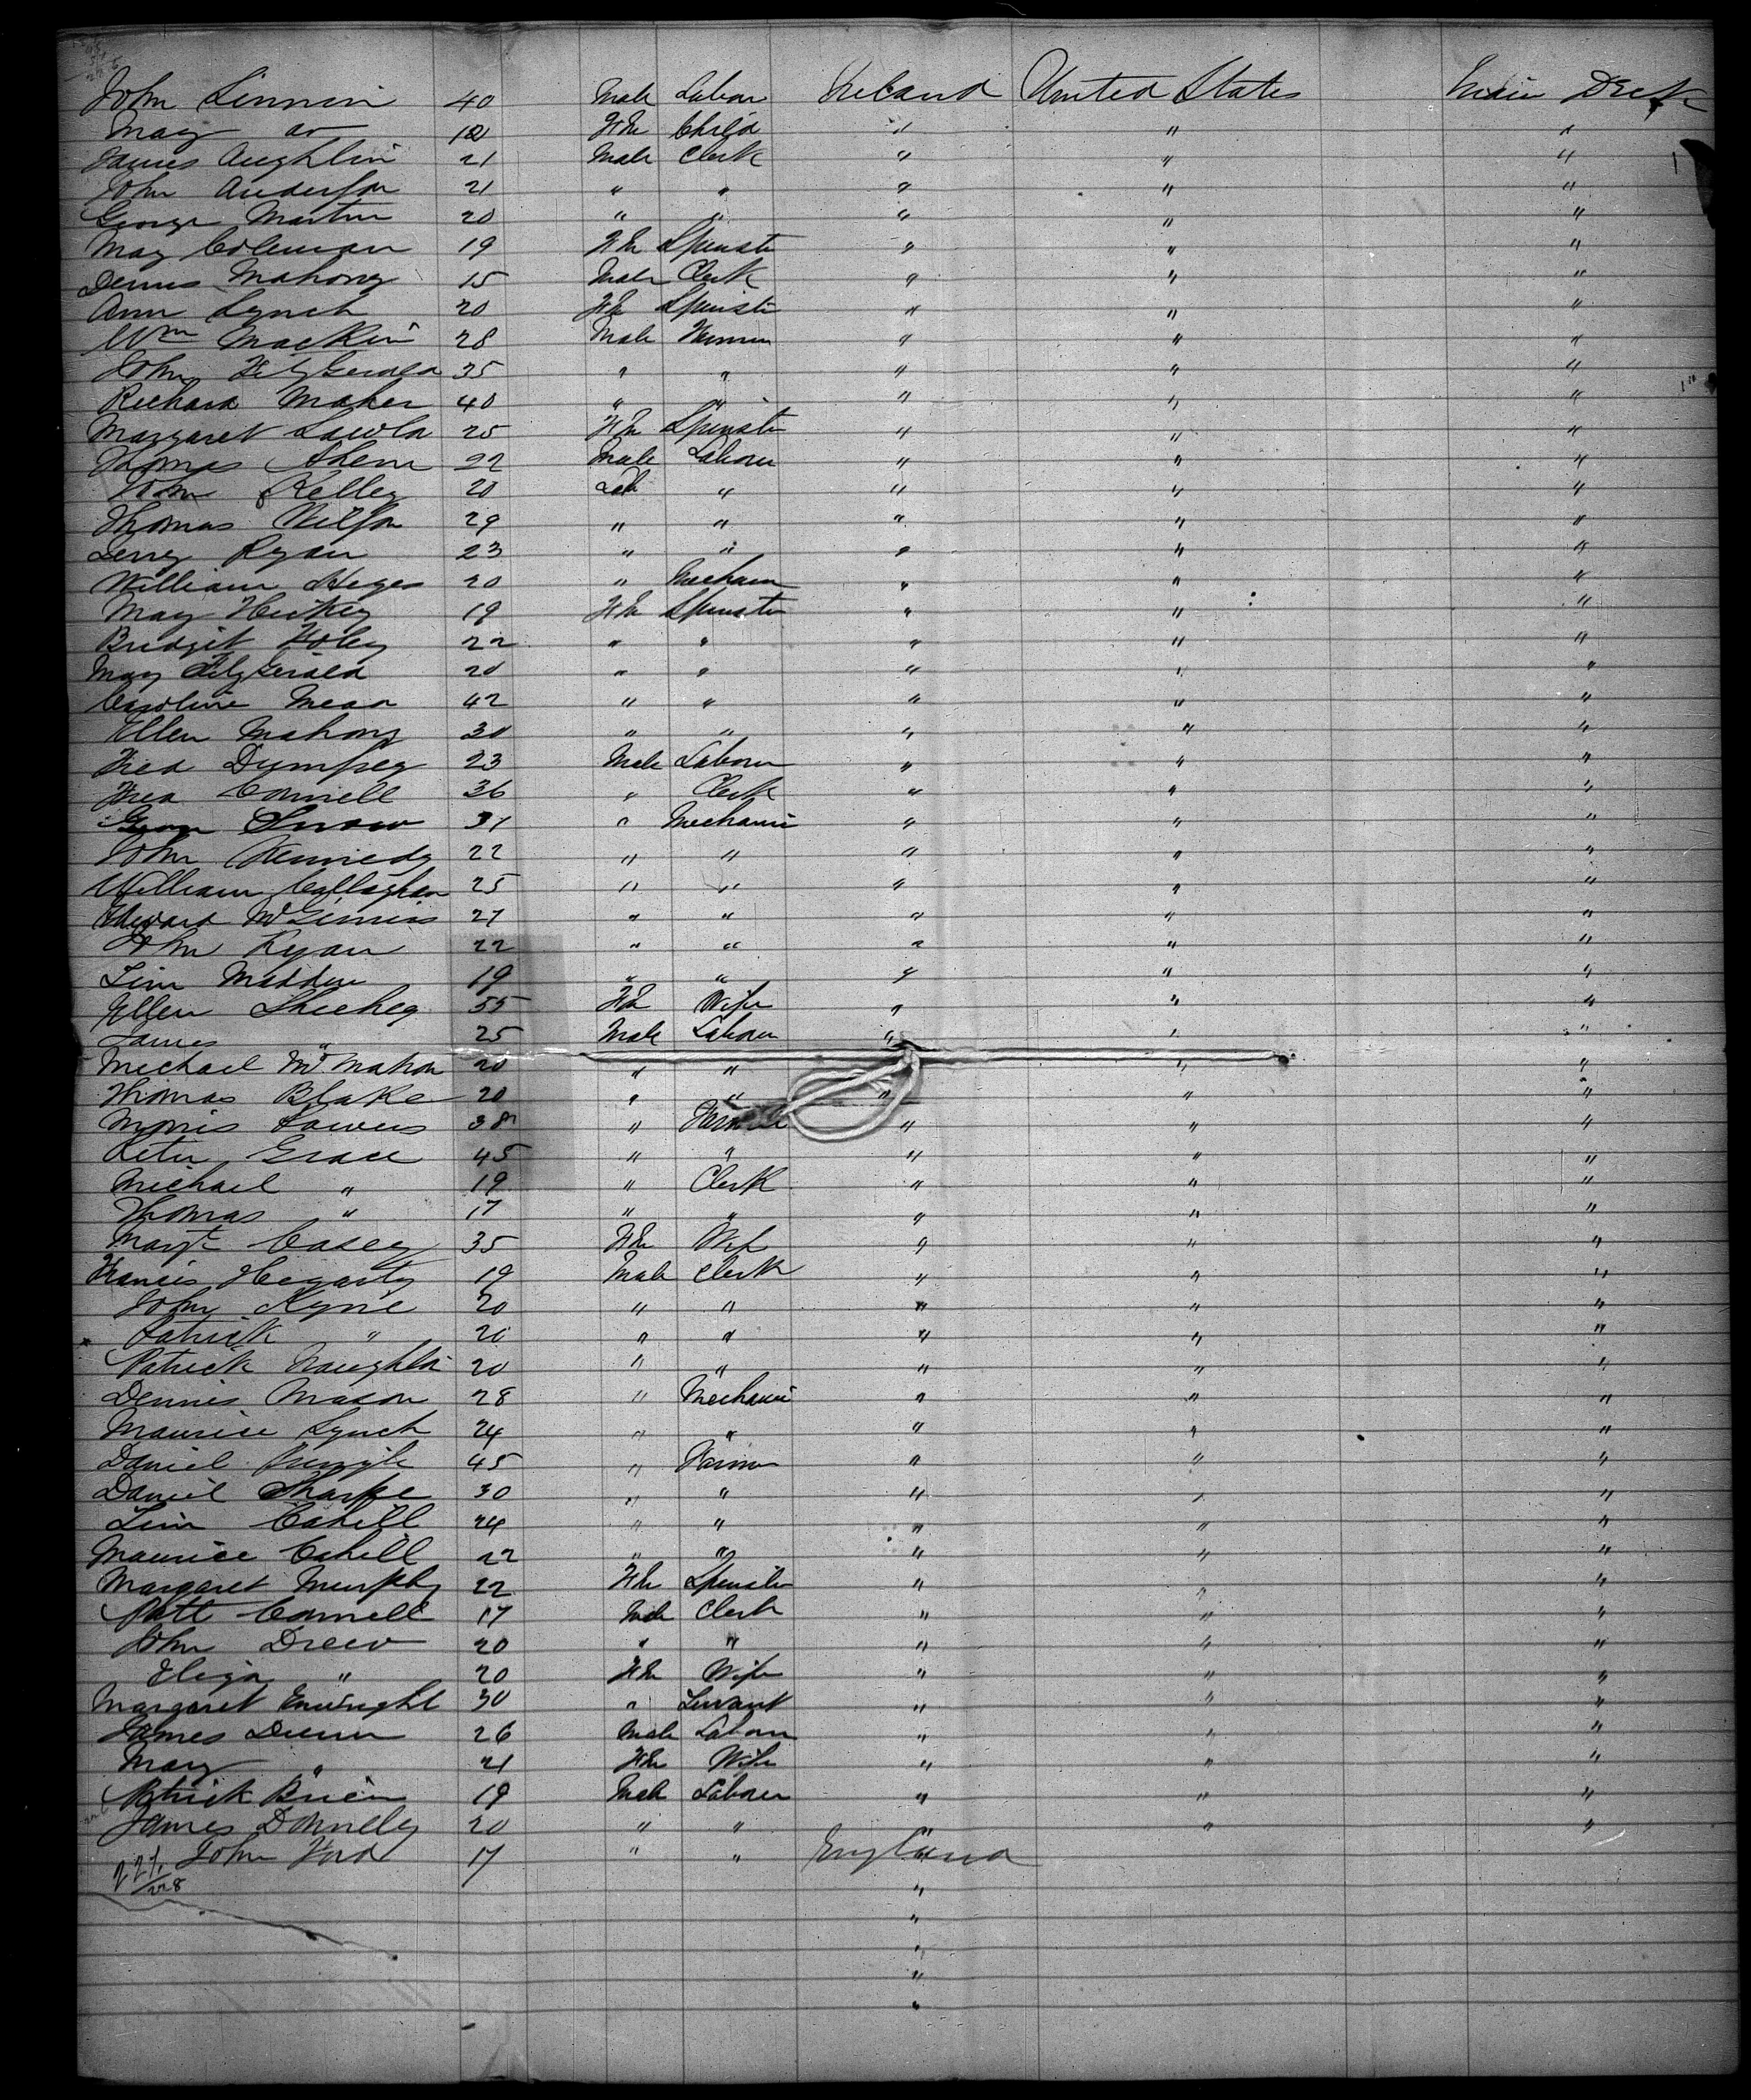 John Linnin 40 Male Labor Ireland United States Main Deck
May do 12 FM Child " " "
James Aughlin 21 Male Clerk " " "
John Anderson 21 " " " " "
George Martin 20 " " " " "
May Coleman 19 FM Spinster " " "
Dennis Mahony 15 Male Clerk " " "
Ann Lynch 20 FM Spinster " " "
Wm Mackin 28 Male Farmer " " "
John FitzGerald 35 " " " " "
Richard Maher 40 " " " " "
Margaret Lawlor 25 FM Spinster " " "
Thomas Ahern 22 Male Laborer " " "
John Kelley 20 " " " "
Thomas Wilson 29 " " " " "
Jerry Ryan 23 " " " " "
William Heyes 20 " Mechanic " " "
May Hickey 19 FM Spinster " " "
Bridgit Foley 22 " " " " "
May FitzGerald 20 " " " " "
Caroline Mead 42 " " " " "
Ellen Mahony 30 " " " " "
Fred Dumpsey 23 Male Laborer " " "
Fred Connell 36 " Clerk " " "
Snow 31 " Mechanic " " "
John Kennedy 22 " " " " "
William Callaghan 25 " " " " "
Edward McGinnis 27 " " " " "
John Ryan 22 " " " " "
Tim Madden 19 " " " " "
Ellen Sheehey 55 FM Wife " " "
James " 25 Male Laborer " " "
Michael McMahon 20 " " " "
Thomas Blake 20 " " " " "
Morris Powers 38 " Farmer " " "
Peter Grace 45 " " " " "
Michael " 19 " Clerk " " "
Thomas " 17 " " " " "
Margt Casey 35 FM Wife " " "
Francis Hegarty 19 Male Clerk " " "
John Kyne 20 " " " " "
Patrick " 20 " " " " "
Patrick Naughton 20 " " " " "
Dennis Mason 28 " Mechanic " " "
Maurice Lynch 24 " " " " "
Daniel 45 " Farmer " " "
Daniel Sharpe 30 " " " " "
Tim Cahill 24 " " " " "
Maurice Cahill 22 " " " " "
Margaret Murphy 22 FM Spinster " " "
Patt Connell 17 Male Clerk " " "
John Drew 20 " " " " "
Eliza " 20 FM Wife " " "
Margaret Enwright 30 " Servant " " "
James Dunn 26 Male Laborer " " "
Mary " 21 FM Wife " " "
Patrick Brien 19 Male Laborer " " "
James Donnelly 20 " " " " "
John Ford 17 " " England
221/228 "
"
"
"
"